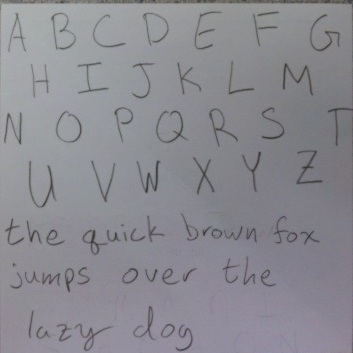 A B C D E F G
H I J K L M
N O P Q R S T
U V W X Y Z
the quick brown fox
jumps over the
lazy dog